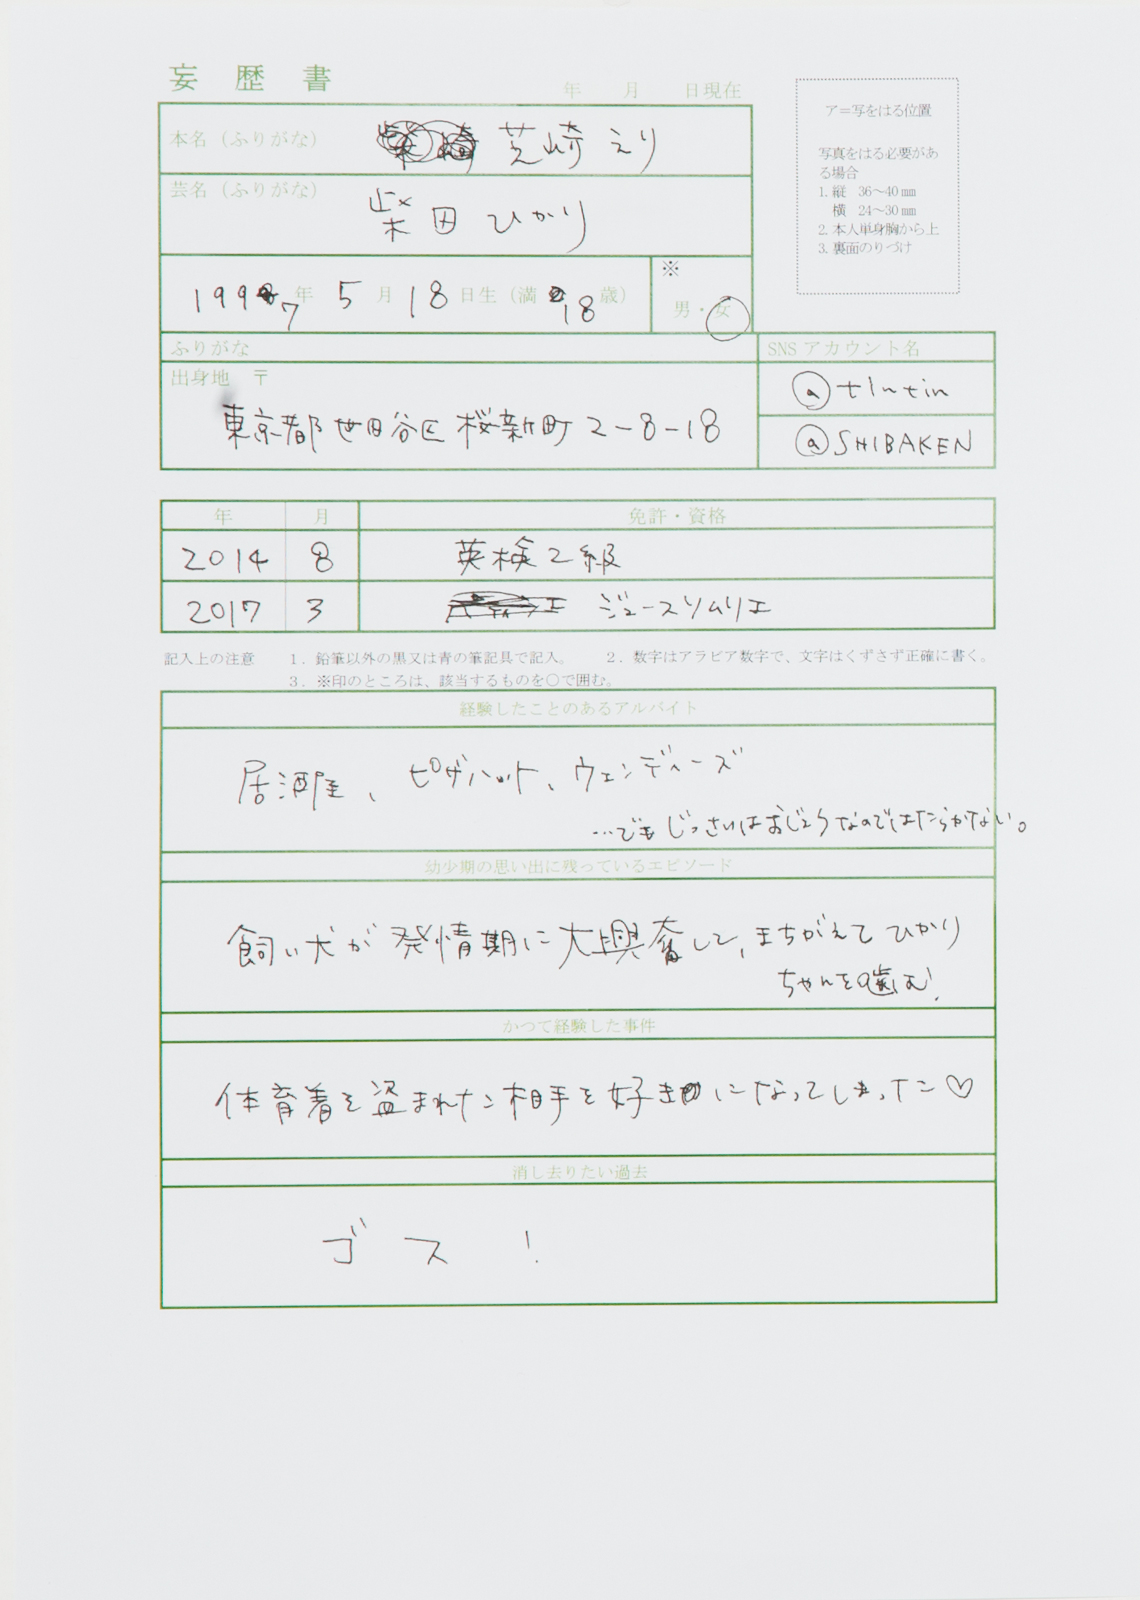 妄歴書
年 月 日現在
本名（ふりがな） 芝崎 えり
芸名（ふりがな） 柴田 ひかり
1997年 5月 18日生（満 18歳） ※ 男・女
ア＝写をはる位置
写真をはる必要があ
る場合
1. 縦 36～40㎜
横 24～30㎜
2. 本人単身胸から上
3. 裏面のりづけ
ふりがな
出身地 〒
東京都世田谷区桜新町2-8-18
SNSアカウント名
@tlntin
@SHIBAKEN
年 月 免許・資格
2014 8 英検2級
2017 3 ジュースソムリエ
記入上の注意 1．鉛筆以外の黒又は青の筆記具で記入。 2．数字はアラビア数字で、文字はくずさず正確に書く。
3．※印のところは、該当するものを○で囲む。
経験したことのあるアルバイト
居酒屋、ピザハット、ウェンディーズ
…でもじっさいはおじょうなのではたらかない。
幼少期の思い出に残っているエピソード
飼い犬が発情期に大興奮して、まちがえてひかり
ちゃんを噛む！
かつて経験した事件
体育着を盗まれた相手を好きになってしまった♡
消し去りたい過去
ゴス！